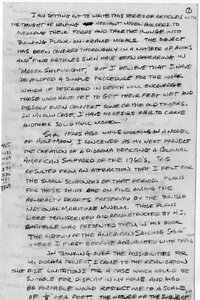 ①
I AM SETTING OUT TO WRITE THIS SERIES OF ARTICLES WITH
THE THOUGHT OF HELPING HESITANT MODEL BUILDERS TO
OVERCOME THEIR FEARS AND TAKE THE PLUNGE INTO
BUILDING PLANK ON FRAME MODELS. THE SUBJECT
HAS BEEN COVERED THOROUGHLY IN A NUMBER OF BOOKS
AND FINE ARTICLES SUCH HAVE BEEN APPEARING IN
"MODEL SHIPWRIGHT", BUT I BELIEVE THAT I HAVE
DEVELOPED A SIMPLE PROCEDURE FOR THE WORK
WHICH IF DESCRIBED IN DEPTH WILL ENCOURAGE
THOSE WHO HAVE YET TO GET THEIR FEET WET AND
POSSIBLY EVEN CONVERT SOME OF THE OLD TIMERS.
IN MY OWN CASE, I HAVE NO DESIRE EVER TO CARVE
ANOTHER SOLID HULL MODEL.
SIX YEARS AGO WHILE WORKING ON A MODEL
OF HALF MOON, I CONCEIVED AS MY NEXT PROJECT
THE CREATION OF A DIORAMA DEPICTING A COLONIAL
AMERICAN SHIPYARD OF THE 1760S. THIS
RESULTED FROM AN ATTRACTION THAT I FELT FOR
THE SMALL SCHOONERS OF THAT PERIOD. PLANS
FOR THOSE SHIPS ARE ON FILE AMONG THE
ADMIRALTY DRAFTS PRESERVED BY THE BRITISH
NATIONAL MARITIME MUSEUM. THOSE PLANS
WERE TRANSCRIBED AND RECONSTRUCTED BY H.I.
CHAPELLE WHO PRESENTED THEM IN HIS BOOK
THE HISTORY OF THE AMERICAN SAILING SHIP
WHERE I FIRST BECAME ACQUAINTED WITH THEM.
IN THINKING OVER THE POSSIBILITIES FOR
MY DIORAMA PROJECT I CAME TO THE REALIZATION
THAT SIZE LIMITATIONS FOR A CASE WHICH WOULD BE
SUITABLE FOR DISPLAY IN MY HOME AND ALSO
BE PORTABLE WOULD RESTRICT ME TO A SCALE
OF PER FOOT. THE NATURE OF THE SUBJECT